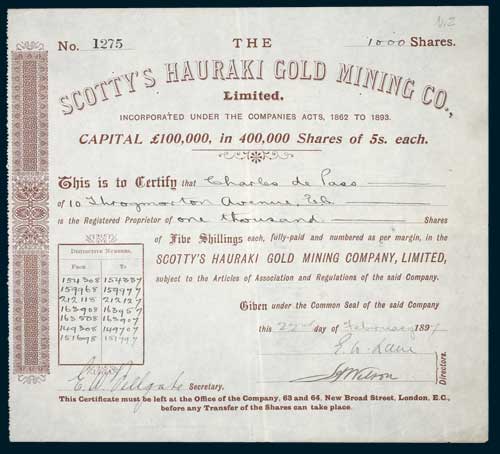 No. 1275 THE 1000 Shares.
SCOTTY'S HAURAKI GOLD MINING CO.,
Limited.
INCORPORATED UNDER THE COMPANIES ACTS, 1862 TO 1893.
CAPITAL £100,000, in 400,000 Shares of 5s. each.
This is to Certify that Charles de Pass
of 10 Throgmorton Avenue, E.C.
is the Registered Proprietor of one thousand Shares
of Five Shillings each, fully-paid and numbered as per margin, in the
SCOTTY'S HAURAKI GOLD MINING COMPANY, LIMITED,
subject to the Articles of Association and Regulations of the said Company.
DISTINCTIVE NUMBERS.
FROM TO
154308 154337
159968 159997
212118 212127
163908 163957
163508 163907
149308 149707
151698
Given under the Common Seal of the said Company
this 22nd day of February 1897
Directors.
Secretary.
This Certificate must be left at the Office of the Company, 63 and 64, New Broad Street, London, E.C.,
before any Transfer of the Shares can take place.